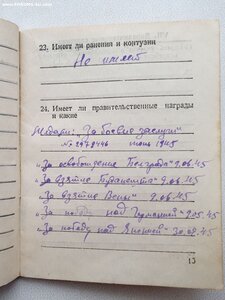 23. Имеет ли ранения и контузии
Не имеет
24. Имеет ли правительственные награды
и какие
Медали: „За боевые заслуги“
июнь 1945
„За освобождение Белграда“ 9.06.45
„За взятие Будапешта“ 9.06.45
„За взятие Вены“ 9.06.45
„За победу над Германией“ 9.05.45
„За победу над Японией“ 30.09.45
13